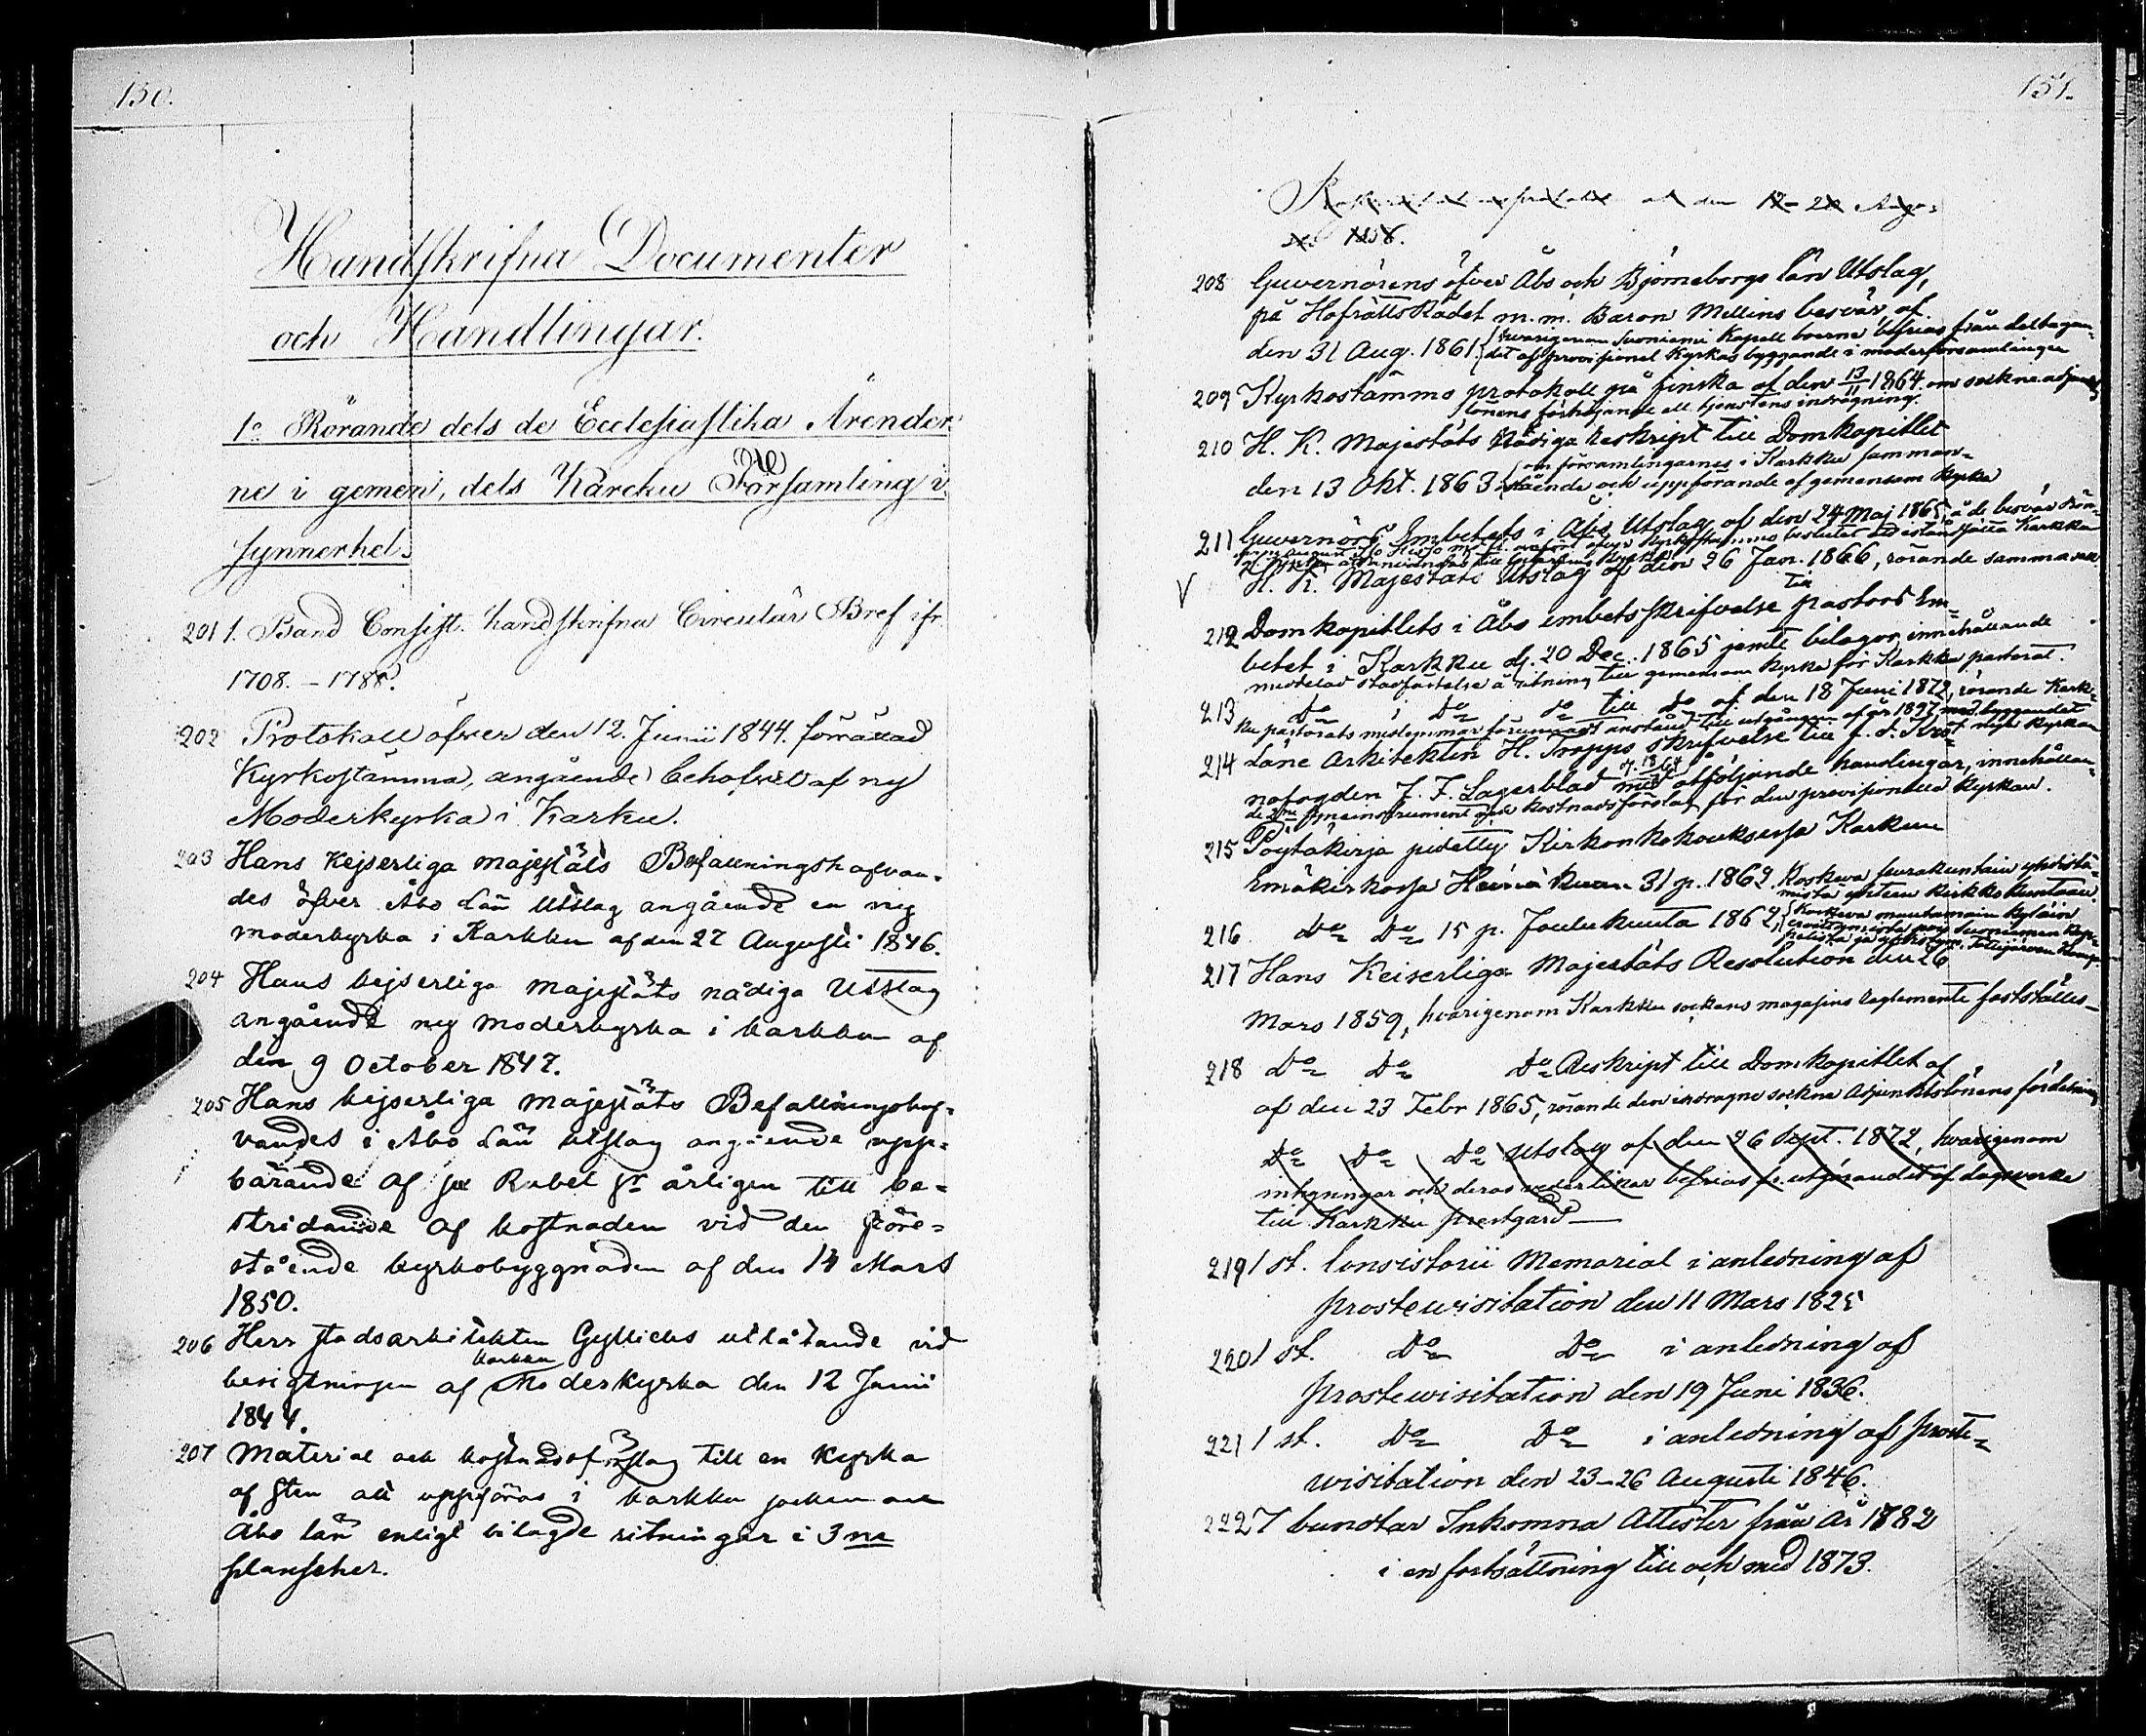 150.
Handskrifna Documenter
och Handlingar.
1o Rörande dels de Ecclesiastika Ärender
ne i gemen, dels Karcku Församling i
synnerhet.
201 1. Band Consist. handskrifna Circulär Bref ifr.
1708. - 1788.
202 Protokoll öfver den 12. Junii 1844. förrättad
Kyrkostämma, angående behofvet af ny
Moderkyrka i Karku.
203 Hans Kejserliga Majestäts Befallningshafvan-
des öfver Åbo Län Utslag angående en ny
moderkyrka i Karkku af den 27 Augusti 1846.
204 Hans kejserliga majestäts nådiga Utslag
angående ny moderkyrka i karkku af
den 9 October 1847.
205 Hans kejserliga majestäts Befallningshaf-
vandes i Åbo Län utslag angående upp-
bärande af Rubel Sr årligen till be-
stridande af kostnaden vid den före-
stående kyrkobyggnaden af den 14 Mars
1850.
206 Herr stadsarkitekten Gyllichs utlåtande vid
besigtningen af karkku Moderkyrka den 12 Junii
1844.
207 Material och kostnadsförslag till en kyrka
af sten att uppföras i karkku socken och
Åbo län enligt bilagde ritningar i 3 ne
plancher.
151.
af den 12-20 Augu-
sti 1858.
208 Guvernörens öfver Åbo och Björneborgs län Utslag,
på Hofrätts Rådet m. m. Baron Mellins besvär, af
den 31 Aug. 1861 hvarigenom Suoniemi Kapell boerne befrias från deltagan-
det af provisionel Kyrkas byggande i moderförsamlingen
209 Kyrkostämmo protokoll på finska af den 13/11 1864 om sockneadjunkts
lönens förhöjande ell. tjenstens indragning.
210 H. K. Majestäts Nådiga Reskript till Domkapitlet
den 13 Okt. 1863 om församlingarnes i Karkku samman-
stående och uppförande af gemensam kyrka
211 Guvernörs Embetets i Åbo Utslag af den 24 Maj 1865, å de besvär
V H. K. Majestäts Utslag af den 26 Jan. 1866, rörande samma sak
212 Domkapitlets i Åbo embetsskrifvelse till pastors Em-
betet i Karkku dj. 20 Dec. 1865 jemte bilagor, innehållande
meddelad stadfästelse å ritning till gemensam kyrka för Karkku pastorat.
213 Do i Do do till do af den 18 Juni 1872, rörande Kark-
ku pastorats medlemmar förunnadt anstånd till utgången af år 1897 med byggandet
af nya kyrkan
214 Läne Arkitekten H. Tropps skrifvelse till f. d. Kro-
nofogden J. F. Lagerblad med åtföljande handlingar, innehållan-
de 2ne syneinstrument och kostnadsförslag för den provisionella kyrkan.
215 Pöytäkirja pidetty Kirkonkokouksessa Karkun
Emäkirkossa Heinäkuun 31 p. 1869. Koskeva seurakuntain yhdistä-
mistä yhteen kirkkokuntaan.
216 Do Do 15 p. Joulukuuta 1864, Koskeva muutamain kyläin
217 Hans Keiserliga Majestäts Resolution den 26
Mars 1859, hvarigenom Karkku sockens magasins reglemente fastställes
218 Do Do Do Reskript till Domkapitlet af
af den 23 Febr 1865, rörande den indragne sockne Adjunktslönens fördelning
Do Do Do Utslag af den 26 Sept. 1872, hvarigenom
inhyningar och deras vederlikar befrias fr. utgörandet af dagsverke
till Karkku prestgård
219 1 st. Consistorii Memorial i anledning af
prostevisitation den 11 Mars 1825
220 1 st. Do Do i anledning af
prostevisitation den 19 Juni 1836.
221 1 st. Do Do i anledning af proste-
visitation den 23-26 Augusti 1846.
222 7 buntar Inkomna Attester från År 1782
i en fortsättning till och med 1873.